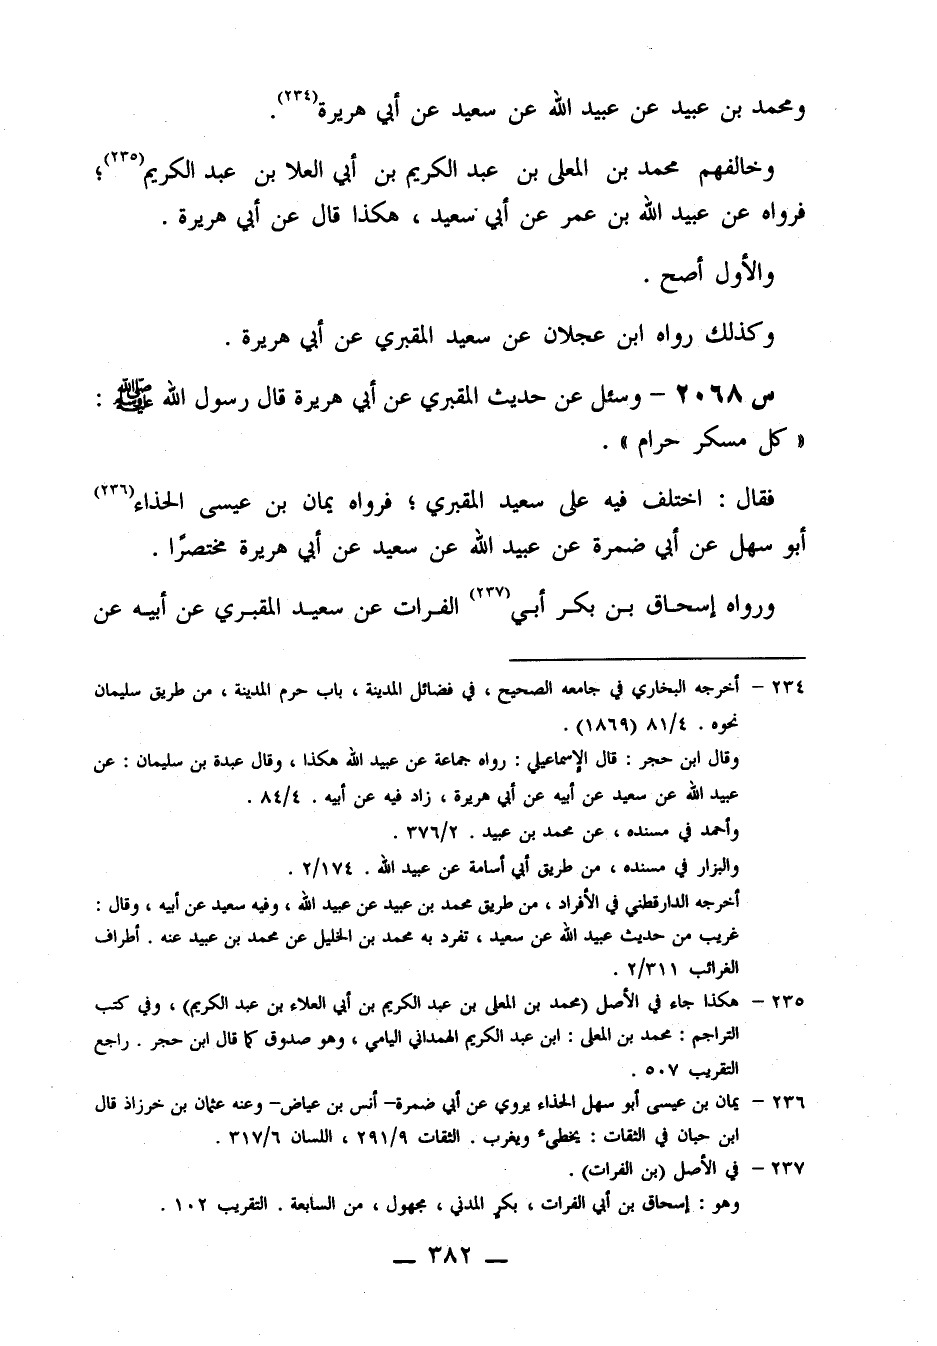 ومحمد بن عبيد عن عبيد الله عن سعيد عن أبي هريرة(٢٣٤).
وخالفهم محمد بن المعلى بن عبد الكريم بن أبي العلا بن عبد الكريم(٢٣٥)؛
فرواه عن عبيد الله بن عمر عن أبي سعيد ، هكذا قال عن أبي هريرة .
والأول أصح .
وكذلك رواه ابن عجلان عن سعيد المقبري عن أبي هريرة .
س ٢٠٦٨ – وسئل عن حديث المقبري عن أبي هريرة قال رسول الله ﷺ :
« كل مسكر حرام » .
فقال : اختلف فيه على سعيد المقبري ؛ فرواه يمان بن عيسى الحذاء(٢٣٦)
أبو سهل عن أبي ضمرة عن عبيد الله عن سعيد عن أبي هريرة مختصرًا .
ورواه إسحاق بن بكر أبي(٢٣٧) الفرات عن سعيد المقبري عن أبيه عن
٢٣٤ – أخرجه البخاري في جامعه الصحيح ، في فضائل المدينة ، باب حرم المدينة ، من طريق سليمان
نحوه . ٨١/٤ (١٨٦٩) .
وقال ابن حجر : قال الإسماعيلي : رواه جماعة عن عبيد الله هكذا ، وقال عبدة بن سليمان : عن
عبيد الله عن سعيد عن أبيه عن أبي هريرة ، زاد فيه عن أبيه . ٨٤/٤ .
وأحمد في مسنده ، عن محمد بن عبيد . ٣٧٦/٢ .
والبزار في مسنده ، من طريق أبي أسامة عن عبيد الله . ٢/١٧٤ .
أخرجه الدارقطني في الأفراد ، من طريق محمد بن عبيد عن عبيد الله ، وفيه سعيد عن أبيه ، وقال :
غريب من حديث عبيد الله عن سعيد ، تفرد به محمد بن الخليل عن محمد بن عبيد عنه . أطراف
الغرائب ٢/٣١١ .
٢٣٥ – هكذا جاء في الأصل (محمد بن المعلى بن عبد الكريم بن أبي العلاء بن عبد الكريم) ، وفي كتب
التراجم : محمد بن المعلى : ابن عبد الكريم الهمداني اليامي ، وهو صدوق كما قال ابن حجر . راجع
التقريب ٥٠٧ .
٢٣٦ – يمان بن عيسى أبو سهل الحذاء يروي عن أبي ضمرة– أنس بن عياض– وعنه عثمان بن خرزاذ قال
ابن حبان في الثقات : يخطىء ويغرب . الثقات ٢٩١/٩ ، اللسان ٣١٧/٦ .
٢٣٧ – في الأصل (بن الفرات) .
وهو : إسحاق بن أبي الفرات ، بكر المدني ، مجهول ، من السابعة . التقريب ١٠٢ .
— ٣٨٢ —